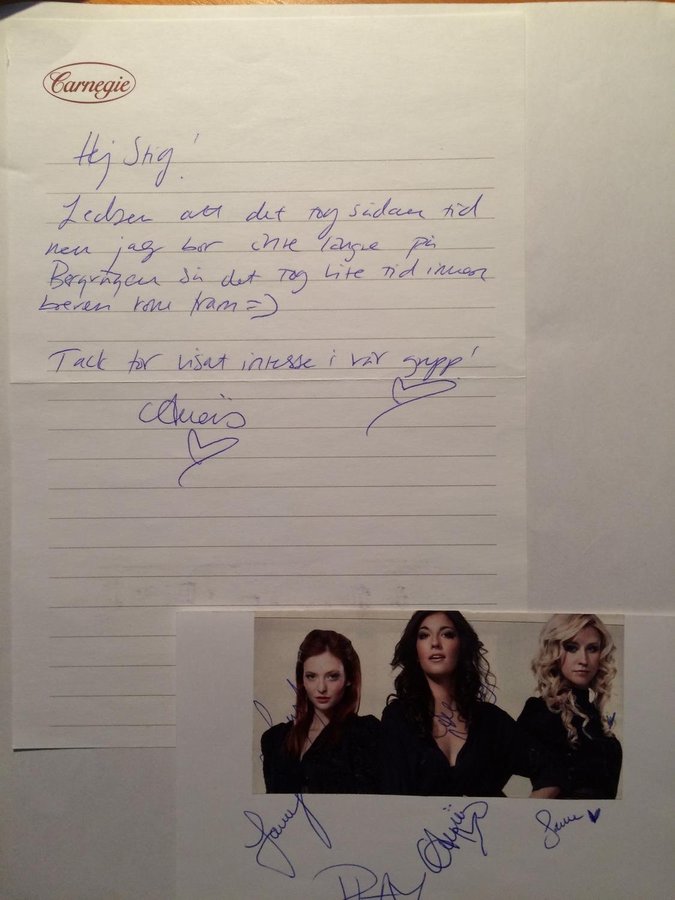 Carnegie
Hej Stig!
Ledsen att det tog sådan tid
men jag bor inte längre på
så det tog lite tid innan
breven kom fram =)
Tack för visat intresse i vår grupp!